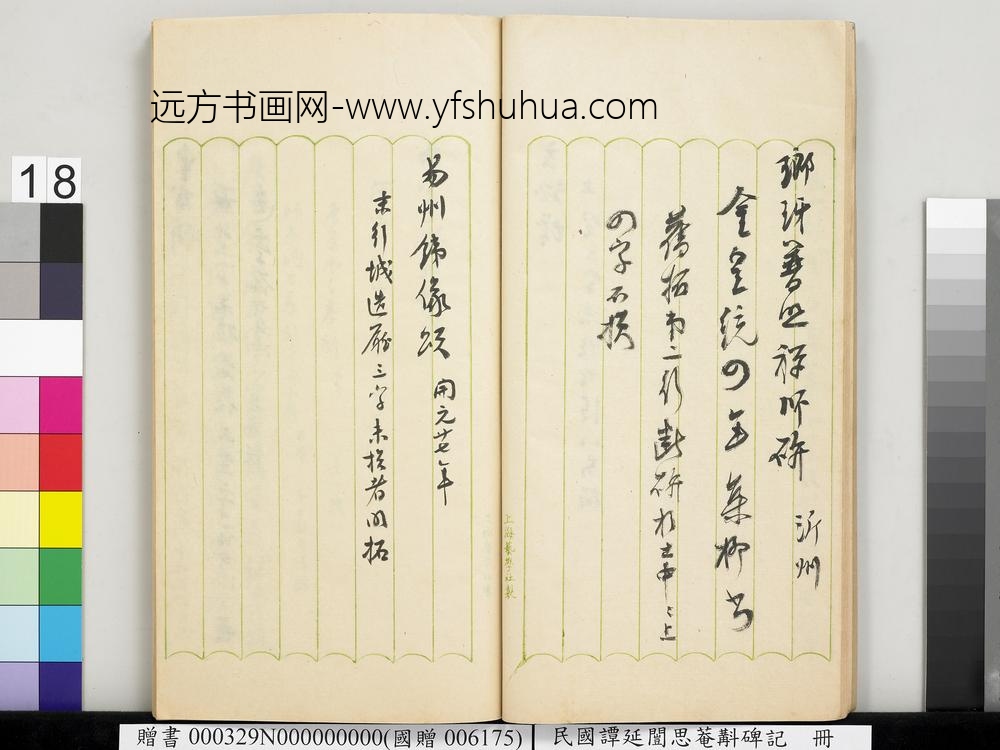 远方书画网-www.yfshuhua.com
18
瑯玡普照禪師碑 沂州
金皇統四年集柳書
舊拓第二行斷碑於土中之上
四字不損
上海藝學社製
易州鐵像頌 開元廿七年
末行城造廳三字未損者明拓
贈書 000329N000000000(國贈 006175)
民國譚延闓思菴斠碑記 冊